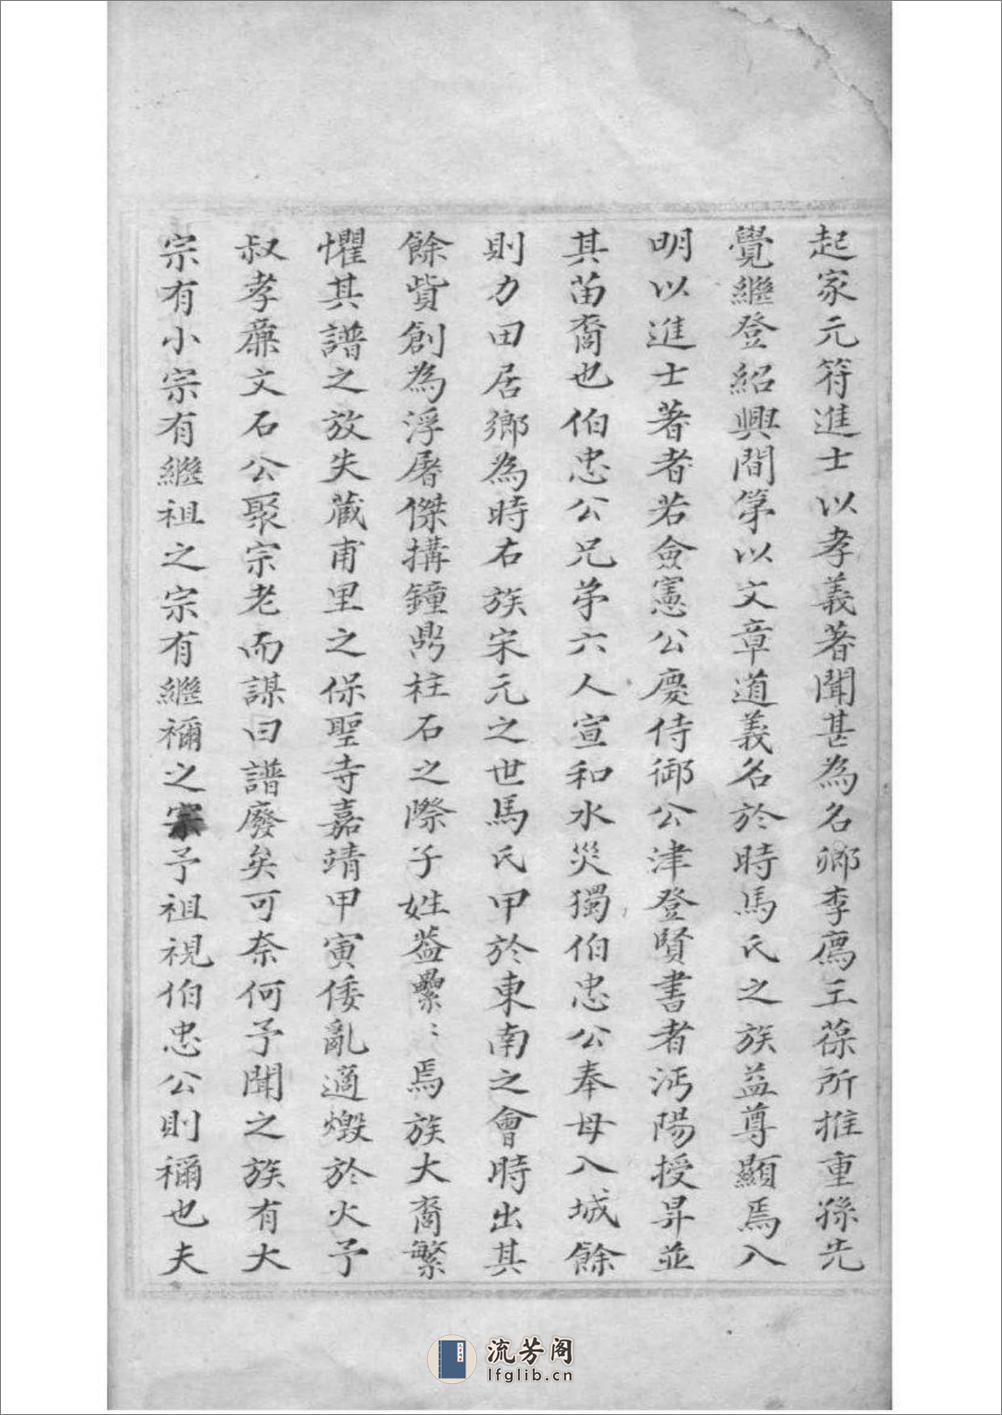 起家元符進士以孝義著聞甚為名卿李廌王葆所推重孫先
覺繼登紹興間第以文章道義名於時馬氏之族益尊顯焉入
明以進士著者若僉憲公慶侍御公津登賢書者沔陽授昇並
其苗裔也伯忠公兄弟六人宣和水災獨伯忠公奉母入城餘
則力田居鄉為時右族宋元之世馬氏甲於東南之會時出其
餘貲創為浮屠傑搆鐘鼎柱石之際子姓益纍〻焉族大裔繁
懼其譜之放失藏甫里之保聖寺嘉靖甲寅倭亂適燬於火予
叔孝亷文石公聚宗老而謀曰譜廢矣可奈何予聞之族有大
宗有小宗有繼祖之宗有繼禰之宗予祖視伯忠公則禰也夫
流芳阁
lfglib.cn